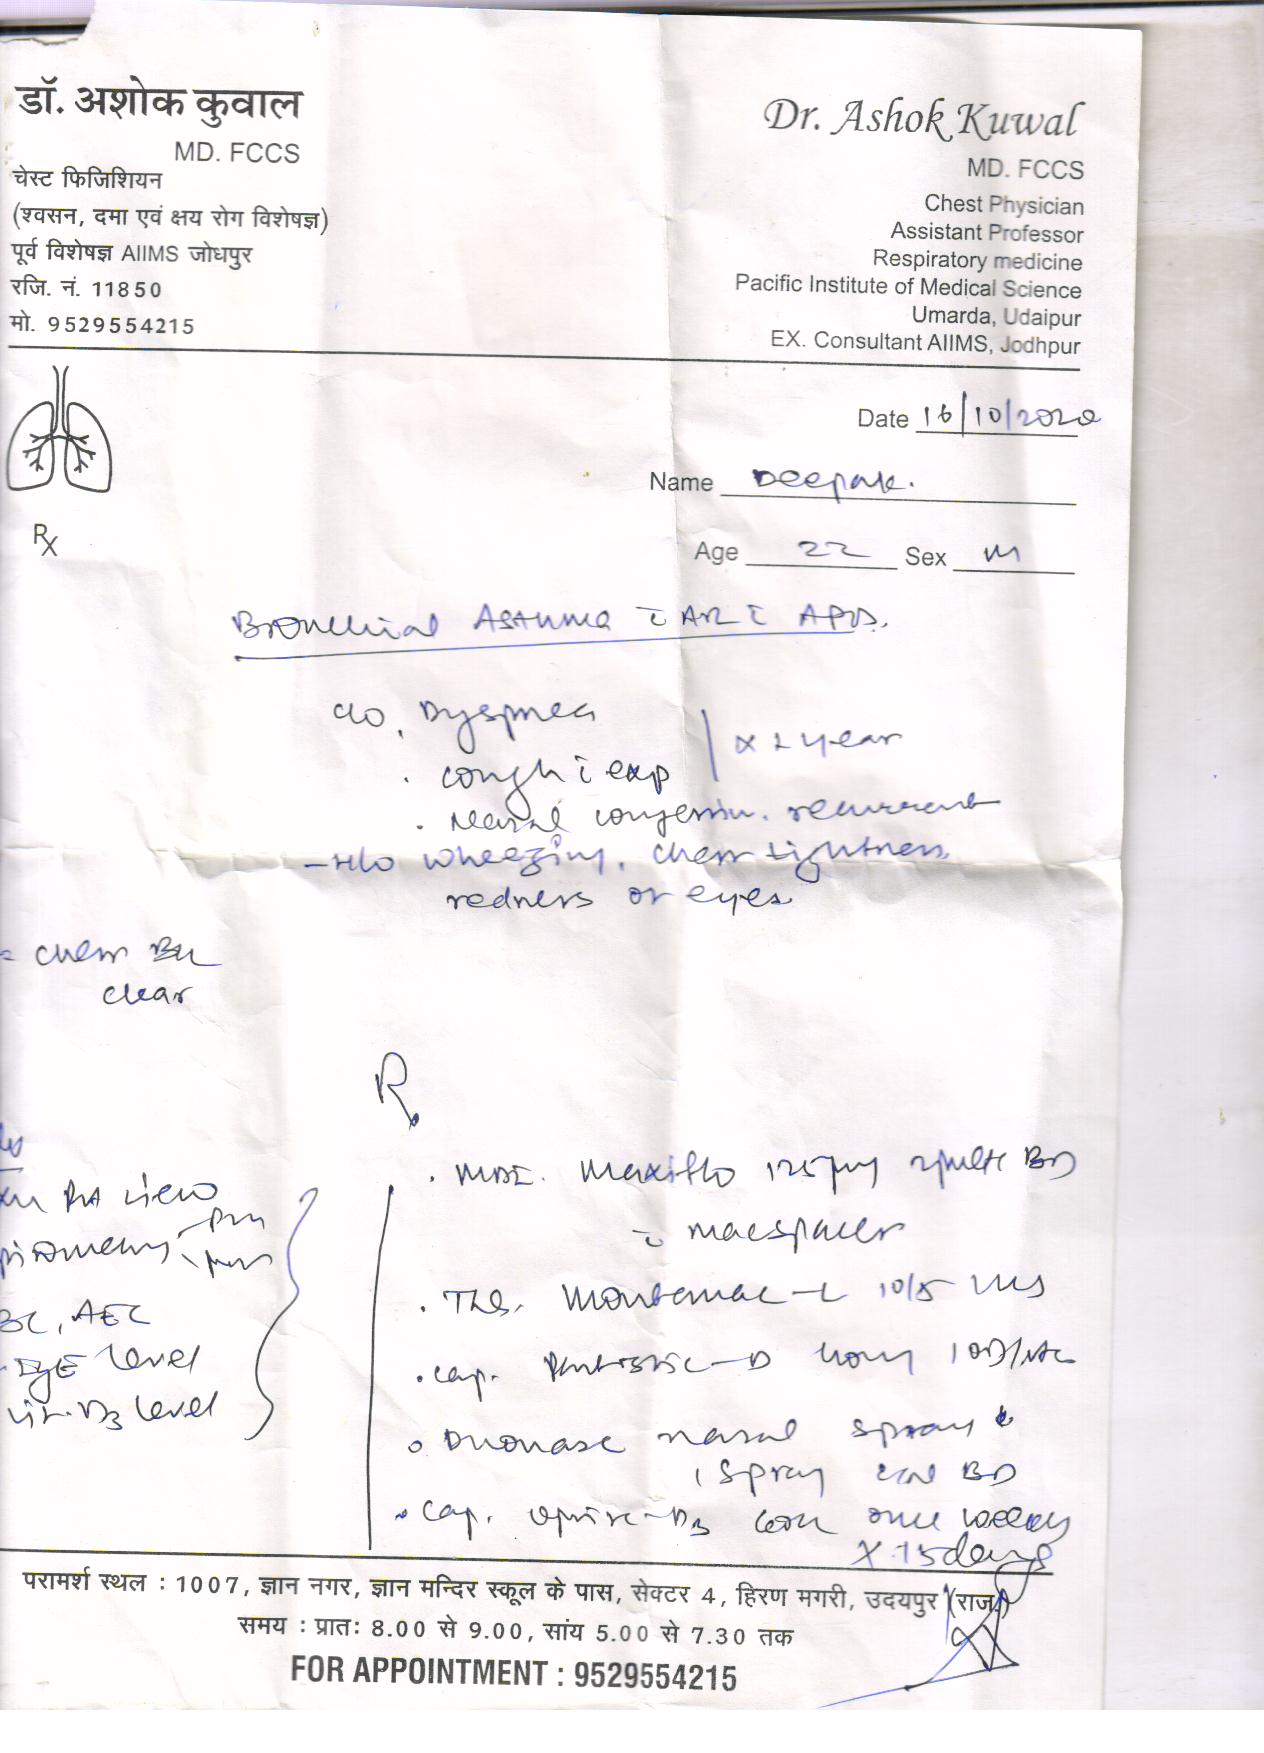 डॉ. अशोक कुवाल
MD. FCCS
चेस्ट फिजिशियन
(श्वसन, दमा एवं क्षय रोग विशेषज्ञ)
पूर्व विशेषज्ञ AIIMS जोधपुर
रजि. नं. 11850
मो. 9529554215
Dr. Ashok Kuwal
MD. FCCS
Chest Physician
Assistant Professor
Respiratory medicine
Pacific Institute of Medical Science
Umarda, Udaipur
EX. Consultant AIIMS, Jodhpur
Date 16/10/2020
Name Deepak.
Age 22 Sex M
Rx
Bronchial Asthma c̄ AR c̄ APD.
c/o. Dyspnea
. cough c̄ exp
x 2 year
. Nasal congestion. recurrent
- H/o wheezing, chest tightness,
redness of eyes
= chest B/L
clear
PA view
BC, AEC
. IgE level
vit. D3 level
R
. MDI. 125 2 puffs BD
c̄ macspacer
. Tab. Montemac-L 10/5
. Cap. -D 1 OD/AC
. Duonase nasal spray
1 spray BD
. Cap. -D3 once weekly
x 15 days
परामर्श स्थल : 1007, ज्ञान नगर, ज्ञान मन्दिर स्कूल के पास, सेक्टर 4, हिरण मगरी, उदयपुर (राज.)
समय : प्रातः 8.00 से 9.00, सांय 5.00 से 7.30 तक
FOR APPOINTMENT : 9529554215